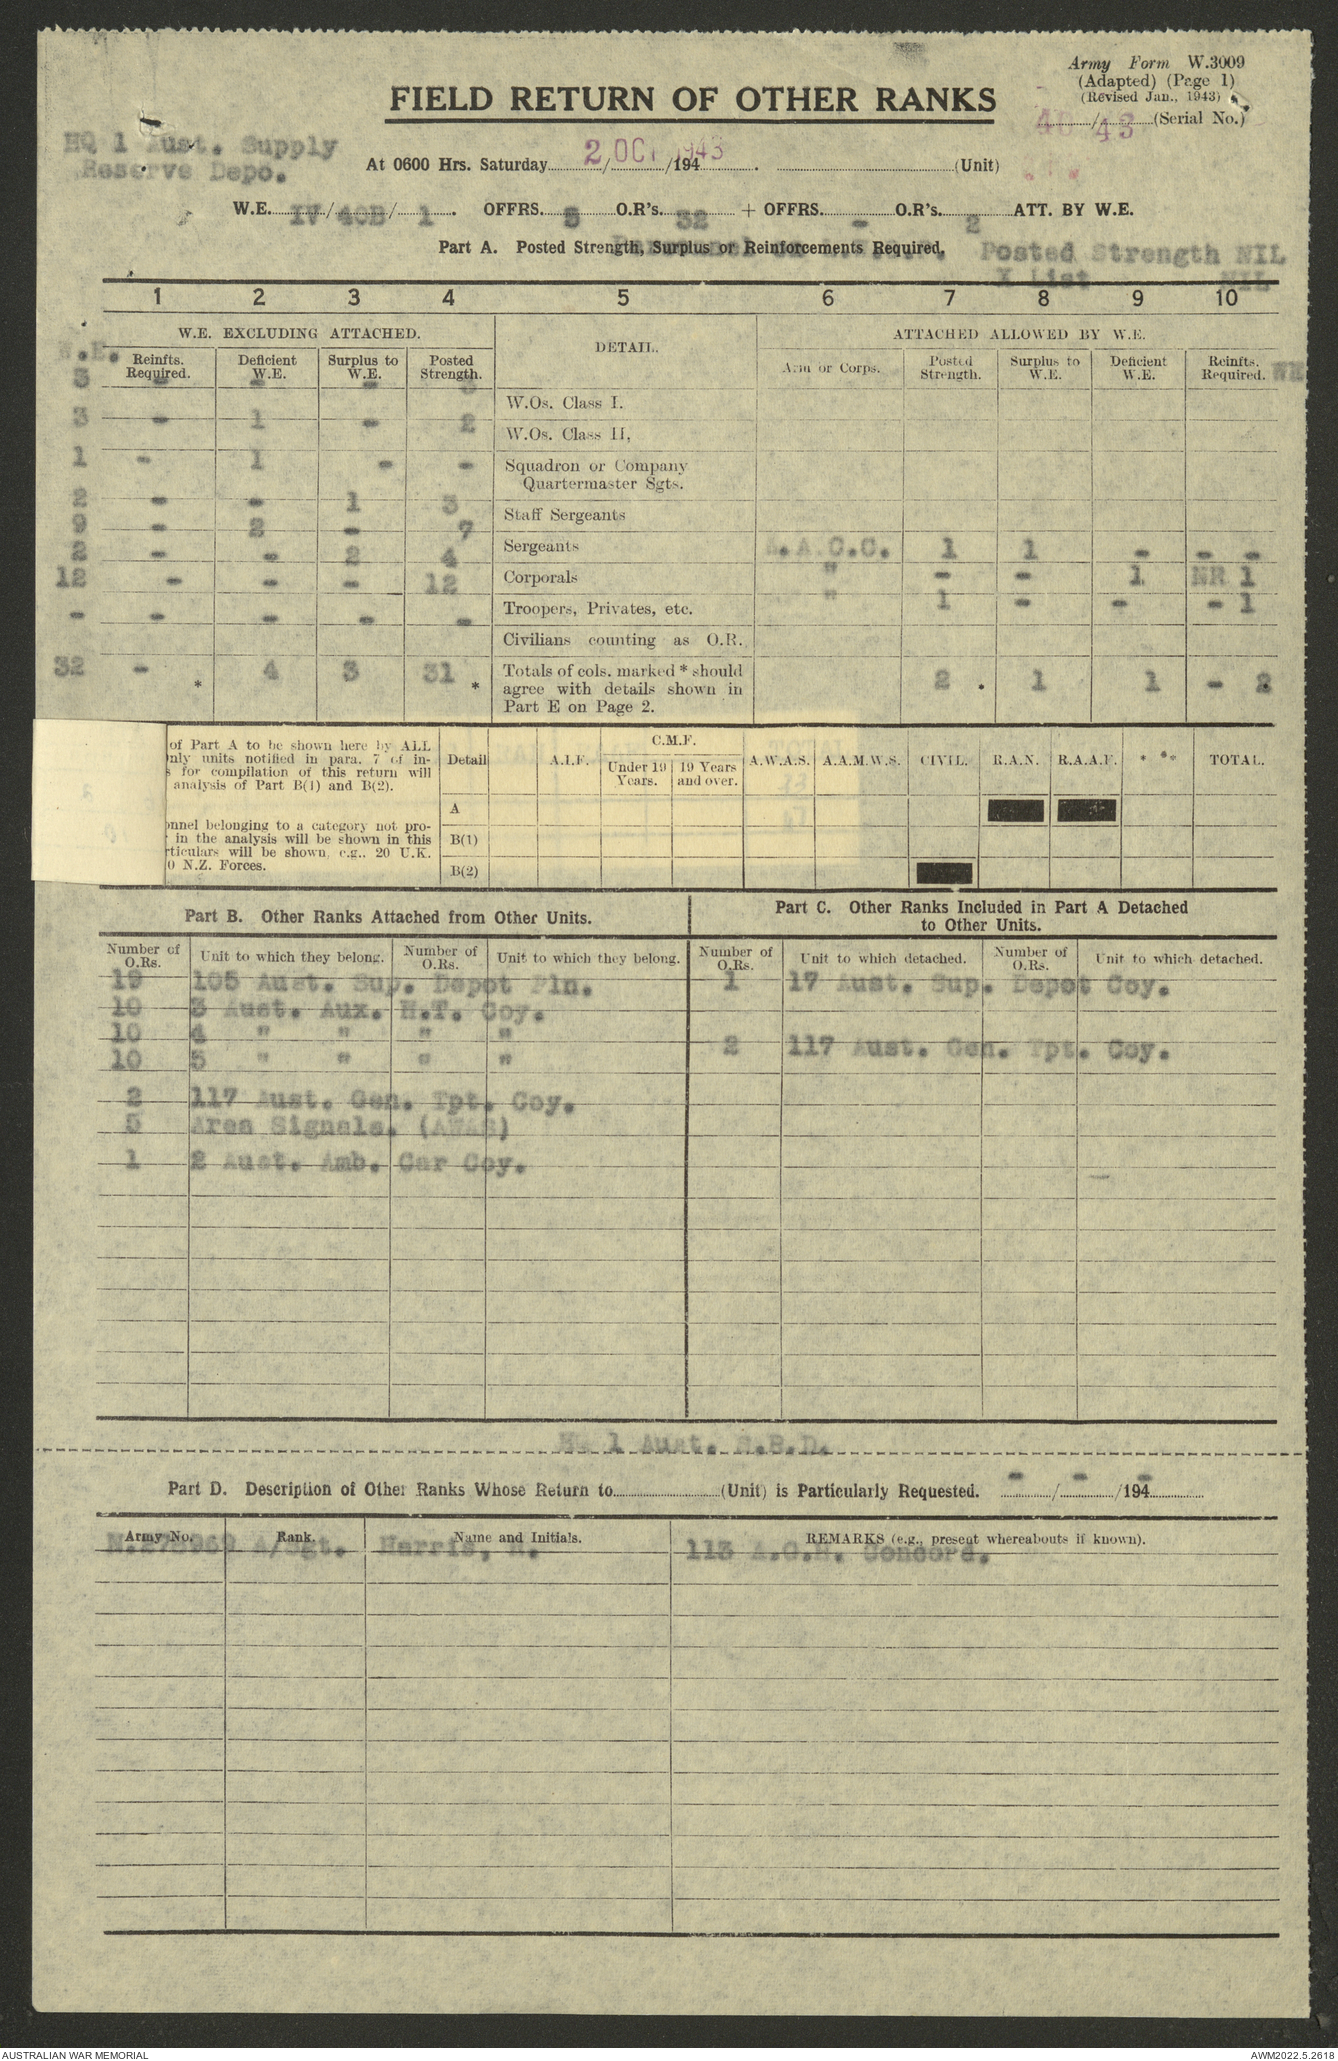 Army Form W.3009
(Adapted) (Page 1)
(Revised Jan., 1943)
FIELD RETURN OF OTHER RANKS
40/43 (Serial No.)
HQ 1 Aust. Supply
Reserve Depo.
At 0600 Hrs. Saturday 2/OCT/1943. (Unit)
W.E. IV/40B/1. OFFRS. 5 O.R's. 32 + OFFRS. - O.R's. 2 ATT. BY W.E.
Part A. Posted Strength, Surplus or Reinforcements Required. Posted Strength NIL
X List NIL
1 2 3 4 5 6 7 8 9 10
W.E. EXCLUDING ATTACHED. DETAIL. ATTACHED ALLOWED BY W.E.
W.E. Reinfts. Required. Deficient W.E. Surplus to W.E. Posted Strength. Arm or Corps. Posted Strength. Surplus to W.E. Deficient W.E. Reinfts. Required. WE
3 - - - 3 W.Os. Class I.
3 - 1 - 2 W.Os. Class II.
1 - 1 - - Squadron or Company
Quartermaster Sgts.
2 - - 1 3 Staff Sergeants
9 - 2 - 7 Sergeants A.A.C.C. 1 1 - - -
2 - - 2 4 Corporals " - - 1 NR 1
12 - - - 12 Troopers, Privates, etc. " 1 - - - 1
- - - - - Civilians counting as O.R.
32 - * 4 3 31 * Totals of cols. marked * should
agree with details shown in
Part E on Page 2. 2 . 1 1 - 2
of Part A to be shown here by ALL
nly units notified in para. 7 of in-
s for compilation of this return will
analysis of Part B(1) and B(2).
onnel belonging to a category not pro-
in the analysis will be shown in this
rticulars will be shown, e.g., 20 U.K.
0 N.Z. Forces.
Detail A.I.F. C.M.F. Under 19 Years. 19 Years and over. A.W.A.S. A.A.M.W.S. CIVIL. R.A.N. R.A.A.F. * ** TOTAL.
A
B(1)
B(2)
Part B. Other Ranks Attached from Other Units. Part C. Other Ranks Included in Part A Detached
to Other Units.
Number of O.Rs. Unit to which they belong. Number of O.Rs. Unit to which they belong. Number of O.Rs. Unit to which detached. Number of O.Rs. Unit to which detached.
19 105 Aust. Sup. Depot Pln. 1 17 Aust. Sup. Depot Coy.
10 3 Aust. Aux. H.T. Coy.
10 4 " " " " 2 117 Aust. Gen. Tpt. Coy.
10 5 " " " "
2 117 Aust. Gen. Tpt. Coy.
5 Area Signals. (AWAS)
1 2 Aust. Amb. Car Coy.
HQ 1 Aust. S.R.D.
Part D. Description of Other Ranks Whose Return to (Unit) is Particularly Requested. -/-/194-
Army No. Rank. Name and Initials. REMARKS (e.g., present whereabouts if known).
A/Sgt. Harris, 113 A.G.H. Concord.
AUSTRALIAN WAR MEMORIAL AWM2022.5.2618